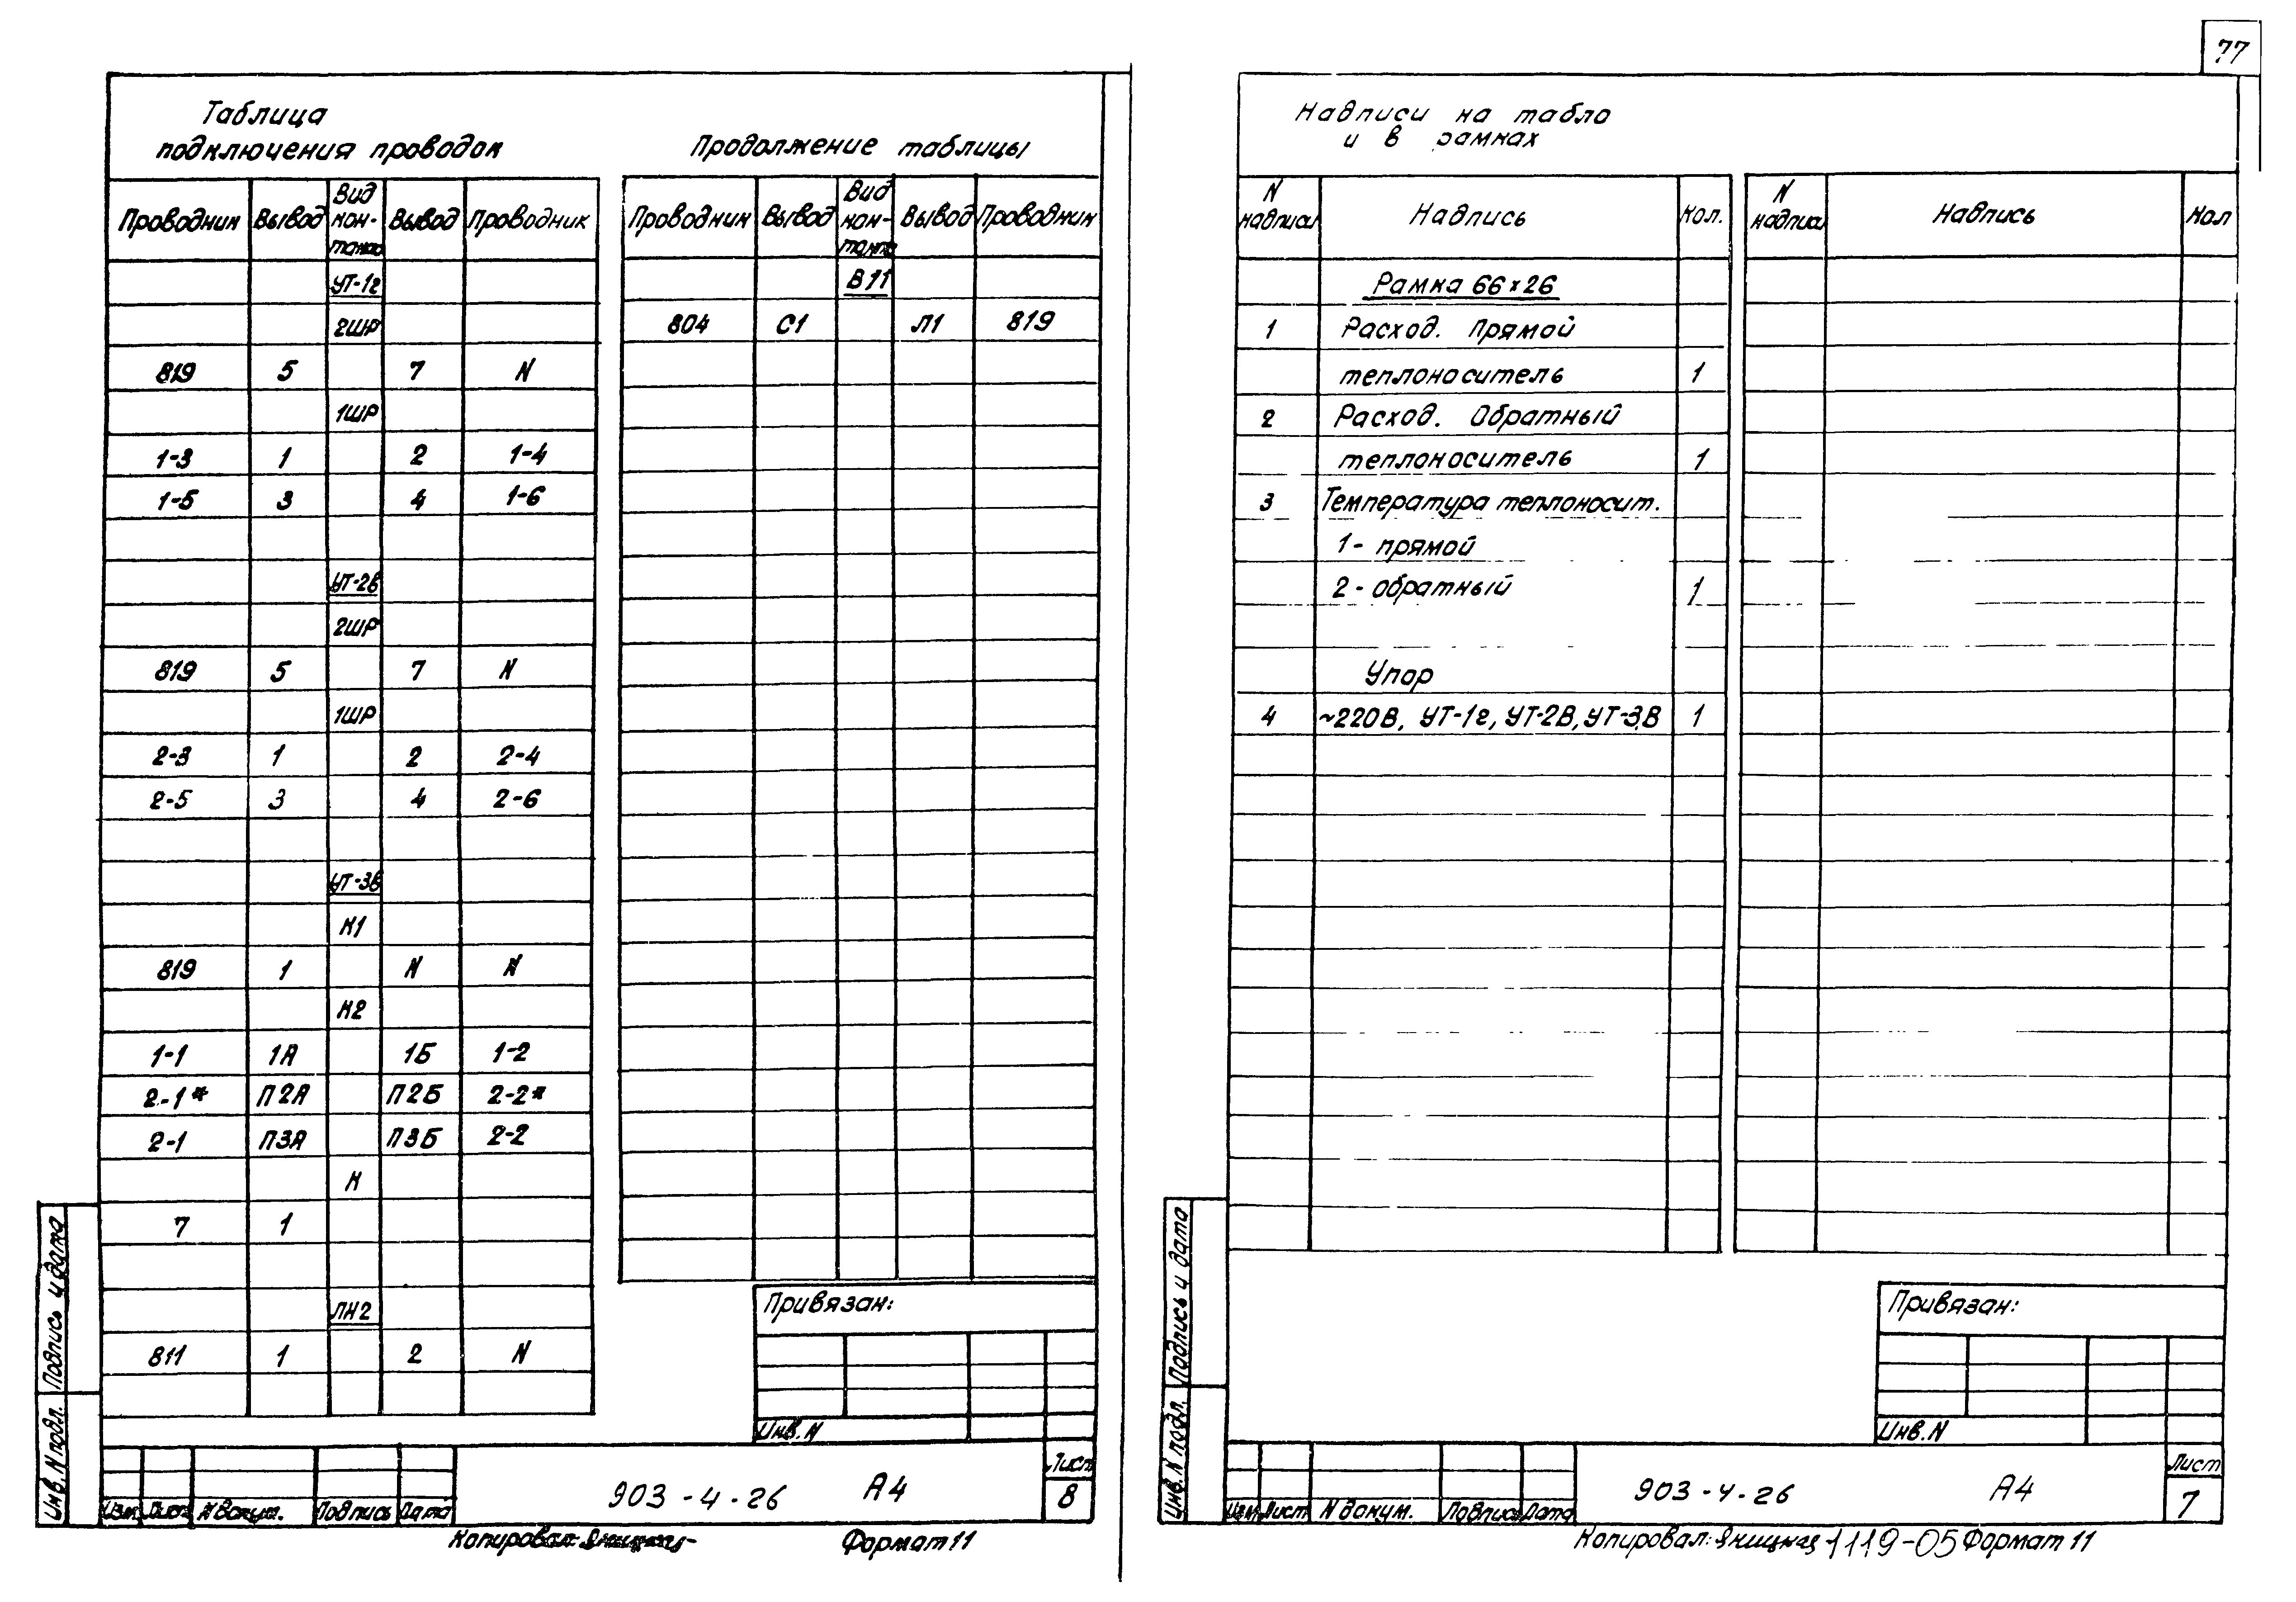 77
Таблица
подключения проводок
Проводник Вывод Вид кон-такта Вывод Проводник
УТ-1г
2ШР
819 5 7 N
1ШР
1-3 1 2 1-4
1-5 3 4 1-6
УТ-2В
2ШР
819 5 7 N
1ШР
2-3 1 2 2-4
2-5 3 4 2-6
УТ-3В
К1
819 1 N N
К2
1-1 1А 1Б 1-2
2-1* П2А П2Б 2-2*
2-1 П3А П3Б 2-2
К
7 1
ЛН2
811 1 2 N
Продолжение таблицы
Проводник Вывод Вид кон-такта Вывод Проводник
В11
804 С1 Л1 819
Привязан:
Инв. N
Изм. Лист N докум. Подпись Дата
903-4-26 А4
Лист
8
Копировал:
Формат 11
Подпись и дата
Инв. N подл.
Надписи на табло
и в рамках
N надписи Надпись Кол. N надписи Надпись Кол
Рамка 66×26
1 Расход. Прямой
теплоноситель 1
2 Расход. Обратный
теплоноситель 1
3 Температура теплоносит.
1- прямой
2- обратный 1
Упор
4 ~220В, УТ-1г, УТ-2В, УТ-3В 1
Привязан:
Инв. N
Изм. Лист N докум. Подпись Дата
903-4-26 А4
Лист
7
Копировал: 1119-05 Формат 11
Подпись и дата
Инв. N подл.